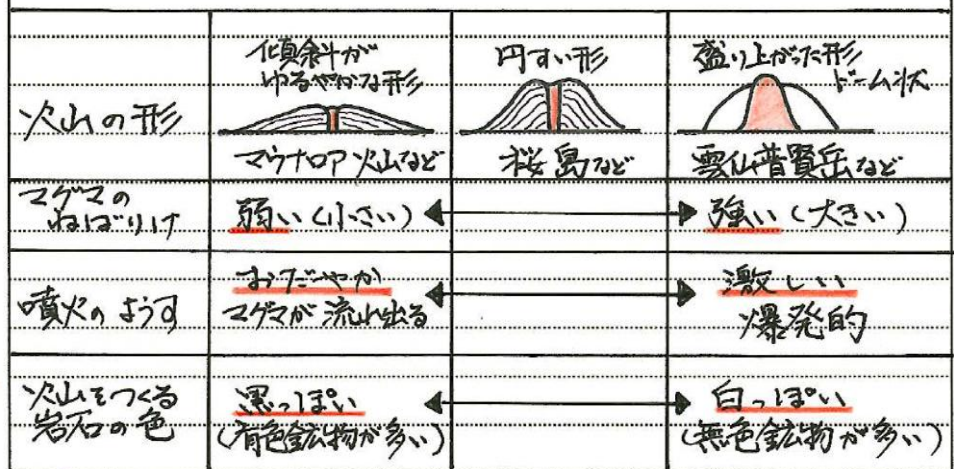 火山の形
傾斜が
ゆるやかな形
マウナロア火山など
円すい形
桜島など
盛り上がった形
ドーム状
雲仙普賢岳など
マグマの
ねばりけ
弱い(小さい)
強い(大きい)
噴火のようす
おだやか
マグマが流れ出る
激しい
爆発的
火山をつくる
岩石の色
黒っぽい
(有色鉱物が多い)
白っぽい
(無色鉱物が多い)